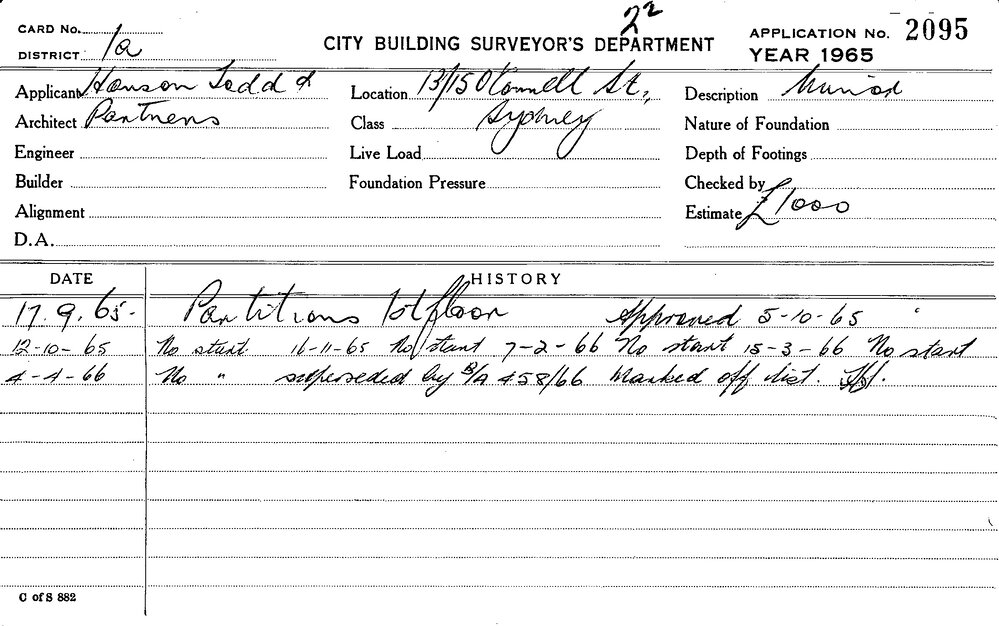 2²
CARD No.
DISTRICT 1a
CITY BUILDING SURVEYOR'S DEPARTMENT
APPLICATION No. 2095
YEAR 1965
Applicant Hanson Todd &
Architect Partners
Engineer
Builder
Alignment
D.A.
Location 13/15 O'Connell St,,
Class Sydney
Live Load
Foundation Pressure
Description Minor
Nature of Foundation
Depth of Footings
Checked by
Estimate £1000
DATE HISTORY
17.9.65- Partitions 1st floor Approved 5-10-65
12-10-65 No start 16-11-65 No start 7-2-66 No start 15-3-66 No start
4-4-66 No " superseded by B/A 458/66 Marked off dist.
C of S 882